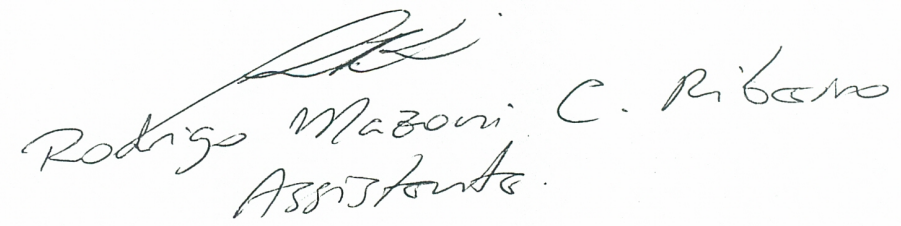 Rodrigo Mazoni C. Ribeiro
Assistente.